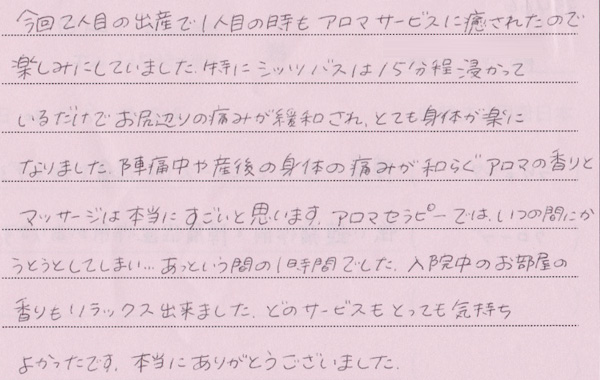 今回2人目の出産で1人目の時もアロマサービスに癒されたので
楽しみにしていました。特にシッツバスは15分程浸かって
いるだけでお尻辺りの痛みが緩和され、とても身体が楽に
なりました。陣痛中や産後の身体の痛みが和らぐアロマの香りと
マッサージは本当にすごいと思います。アロマセラピーでは、いつの間にか
うとうとしてしまい…あっという間の1時間でした。入院中のお部屋の
香りもリラックス出来ました。どのサービスもとっても気持ち
よかったです。本当にありがとうございました。